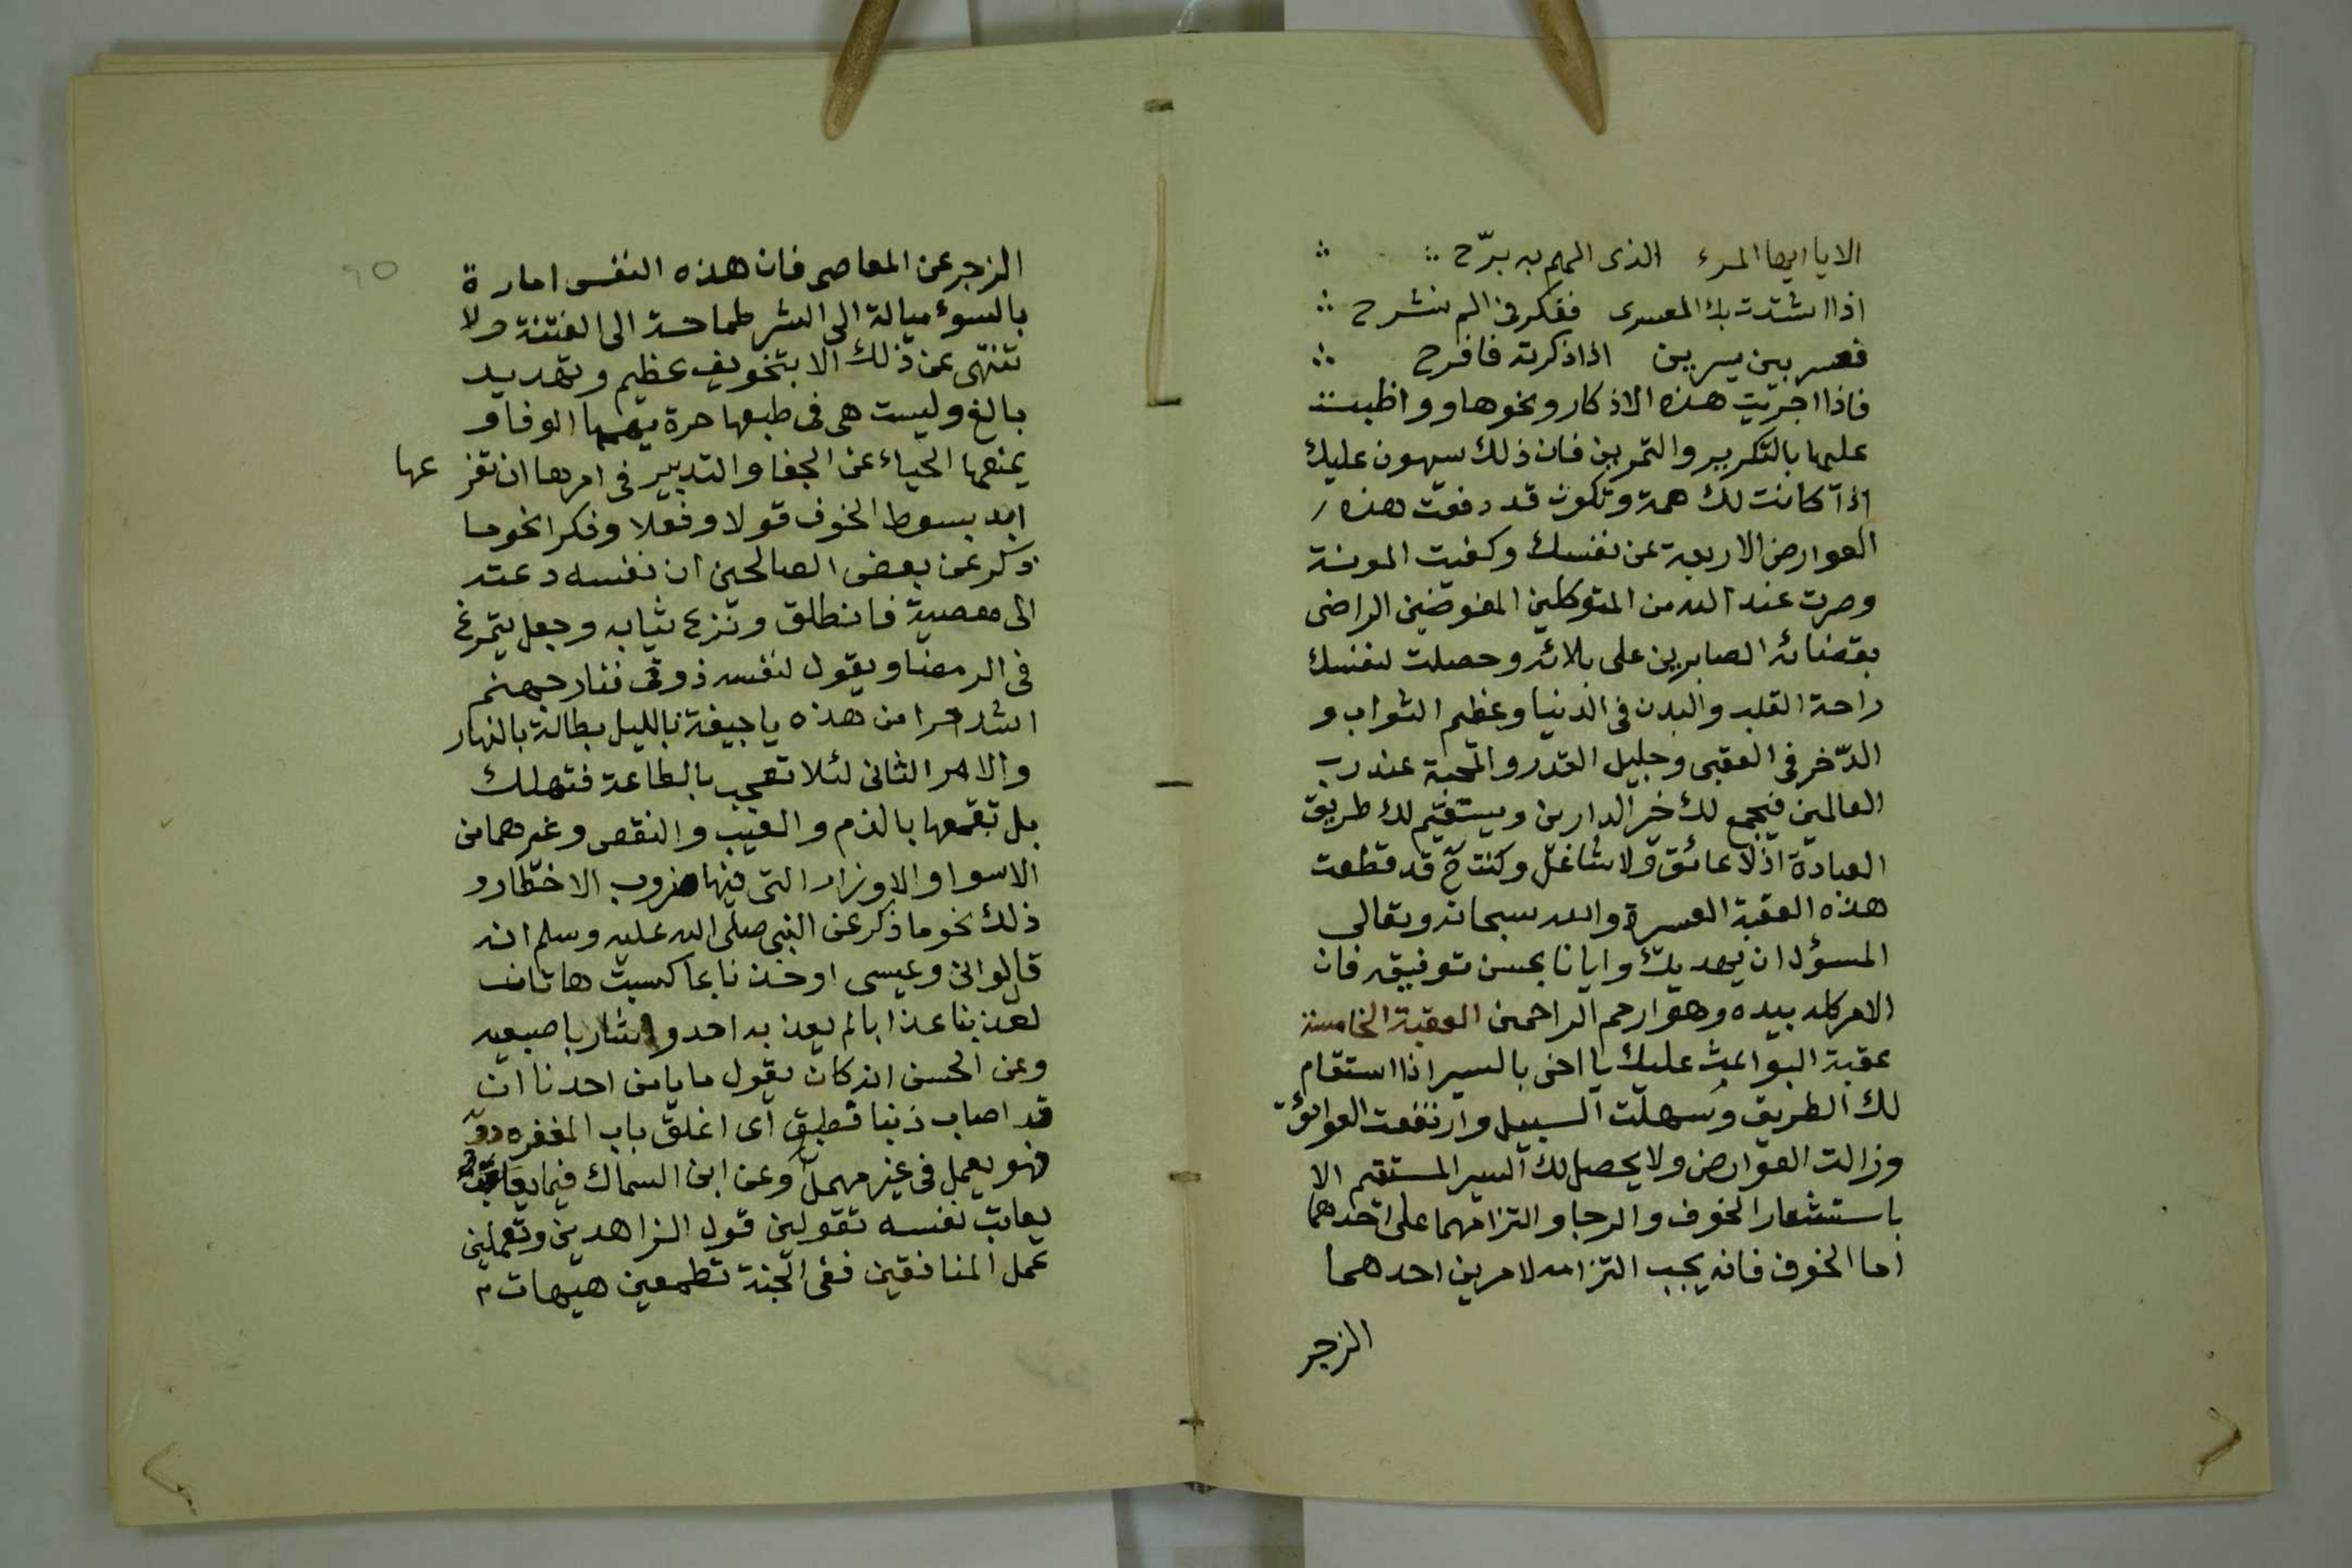 الا يا ايها المرء الذى الهم به برّح ∴ ∴
اذا اشتدت بك العسرى ففكر فى الم نشرح ∴
فعسر بين يسرين اذا ذكرته فافرح ∴
فاذا اجريت هذه الاذكار ونحوها وواظبت
عليها بالتكرير والتمرين فان ذلك سيهون عليك
اذا كانت لك همة وتكون قد دفعت هذه
العوارض الاربعة عن نفسك وكفيت المونة
وصرت عند الله من المتوكلين المفوضين الراضى
بقضائه الصابرين على بلائه وحصلت لنفسك
راحة القلب والبدن فى الدنيا وعظيم الثواب و
الذّخر فى العقبى وجليل القدر والمحبة عند رب
العالمين فيجمع لك خير الدارين ويستقيم لك طريق
العبادة اذ لا عائق ولا شاغل وكنت ح قد قطعت
هذه العقبة العسرة والله سبحانه وتعالى
المسؤل ان يهديك وايانا بحسن توفيقه فان
الامر كله بيده وهو ارحم الراحمين العقبة الخامسة
عقبة البواعث عليك يا اخى بالسير اذا استقام
لك الطريق وسهلت السبيل وارتفعت العوائق
وزالت العوارض ولا يحصل لك السير المستقيم الا
باستشعار الخوف والرجا والتزامهما على احدهما
اما الخوف فانه يجب التزامه لامرين احدهما
الزجر
الزجر عن المعاصى فان هذه النفس امارة
بالسوء ميالة الى الشر طماحة الى الفتنة ولا
تنتهى عن ذلك الا بتخويف عظيم وتهديد
بالغ وليست هى فى طبعها حرة يهمها الوفا و
يمنعها الحياء عن الجفا والتدبير فى امرها ان تقز عها
ابد بسوط الخوف قولا وفعلا وفكرا نحو ما
ذكر عن بعض الصالحين ان نفسه دعته
الى معصية فانطلق ونزع ثيابه وجعل يتمرغ
فى الرمضا ويقول لنفسه ذوقى فنار جهنم
اشد حرا من هذه يا جيفة بالليل بطالة بالنهار
والامر الثانى لئلا تعجب بالطاعة فتهلك
بل تقمعها بالذم والعيب والنقص وغيرهما من
الاسوا والاوزار التى فيها ضروب الاخطار و
ذلك نحو ما ذكر عن النبى صلى الله عليه وسلم انه
قال لو انى وعيسى اوخذنا بما كسبت هاتان
لعذبنا عذابا لم يعذبه احد واشار باصبعيه
وعن الحسن انه كان يقول ما يامن احدنا ان
قد اصاب ذنبا فطبق اى اغلق باب المغفره دونه
فهو يعمل فى غير مهمل وعن ابن السماك فيما يعاتب
يعاتب نفسه تقولين قول الزاهدين وتعملين
عمل المنافقين ففى الجنة تطمعين هيهات